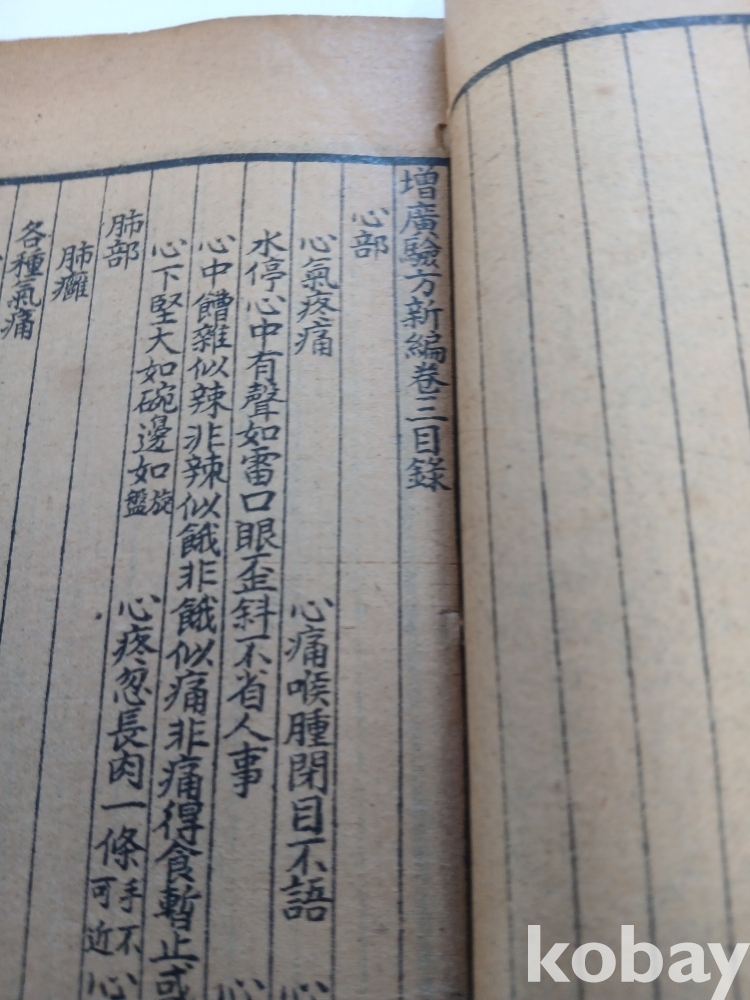 增廣驗方新編卷三目錄
心部
心氣疼痛 心痛喉腫閉目不語 心
水停心中有聲如雷口眼歪斜不省人事 心
心中饋雜似辣非辣似餓非餓似痛非痛得食暫止或
心下堅大如碗邊如旋盤 心疼忽長肉一條手不可近 心
肺部
肺癰
各種氣痛
kobay